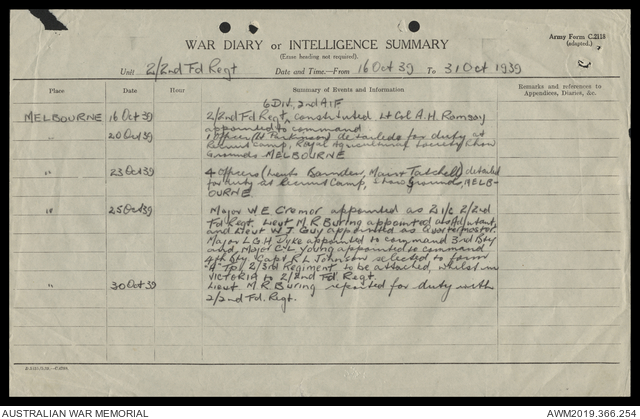 Army Form C.2118
(adapted.)
WAR DIARY or INTELLIGENCE SUMMARY
(Erase heading not required).
Unit 2/2nd Fd Regt Date and Time—From 16 Oct 39 To 31 Oct 1939
Place Date Hour Summary of Events and Information Remarks and references to Appendices, Diaries, &c.
6 Div. 2nd AIF
MELBOURNE 16 Oct 39 2/2nd Fd Regt, constituted Lt Col A.H. Ramsay
appointed to command
" 20 Oct 39 1 Officer (Lt Parkinson) detailed for duty at
Recruit Camp, Royal Agricultural Society Show
Grounds MELBOURNE
" 23 Oct 39 4 Officers (Lieuts Tatchell) detailed
for duty at Recruit Camp, Show Grounds, MELB-
OURNE
" 25 Oct 39 Major W.E. Cremor appointed as 2 i/c 2/2nd
Fd Regt. Lieut M R Buring appointed as Adjutant,
and Lieut W J Guy appointed as Quartermaster.
Major L G H Dyke appointed to command 3rd Bty
and, Major C L Young appointed to command
4th Bty. Capt R L Johnson selected to form
"A" Tp, 2/3rd Regiment, to be attached, whilst in
VICTORIA to 2/2nd Fd Regt.
" 30 Oct 39 Lieut. M R Buring reported for duty with
2/2nd Fd. Regt.
AUSTRALIAN WAR MEMORIAL AWM2019.366.254